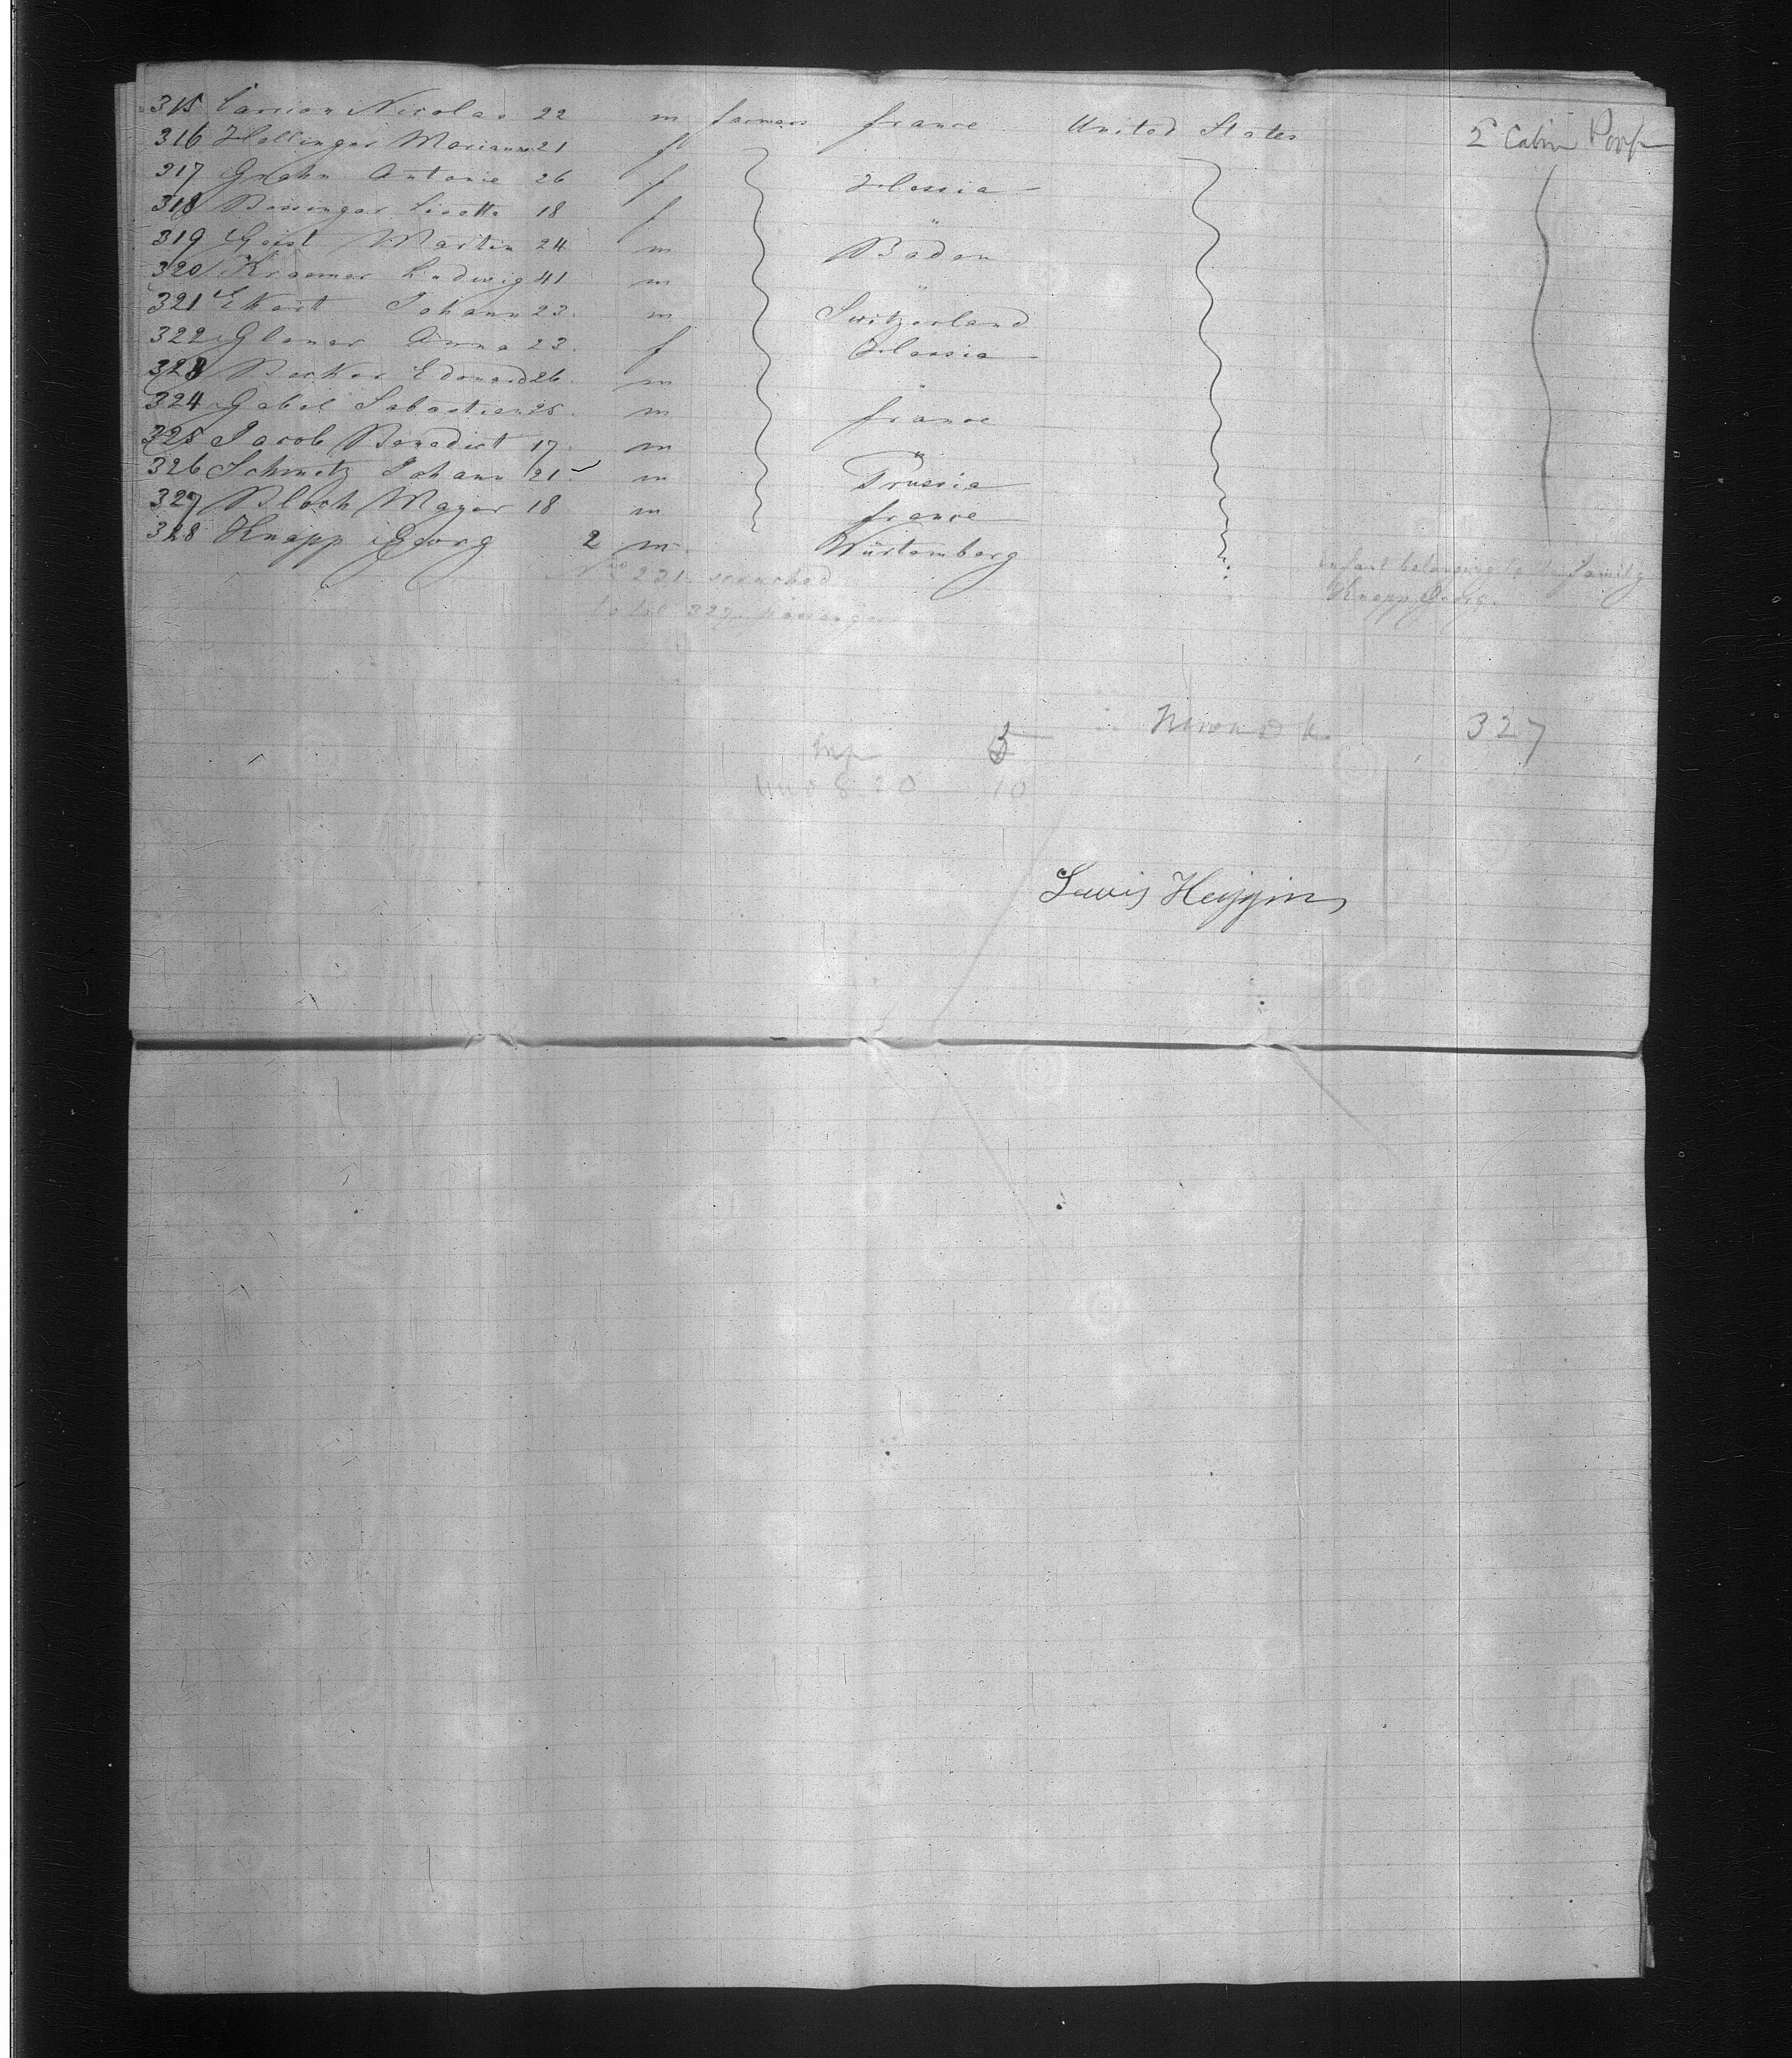 315 Carrion Nicolas 22 m farmers france United States 2d Cabin Poop
316 Hollinger Marianne 21 f "
317 Grahn Antonie 26 f Hessia
318 Bessinger Lisette 18 f "
319 Geist Martin 24 m Baden
320 Kraemer Ludwig 41 m "
321 Ekart Johann 23 m Switzerland
322 Glaner Anna 23 f Hessia
323 Becker Edouard 26 m "
324 Gabel Sebastien 25 m france
325 Jacob Benedict 17 m "
326 Schmitz Johann 21 m Prussia
327 Bloch Mayer 18 m france
328 Knapp Georg 2 m Würtemberg infant belonging to the family
No 221 scratched Knapp Georg.
total 327 passengers
327
5
20 10
Lewis Higgins